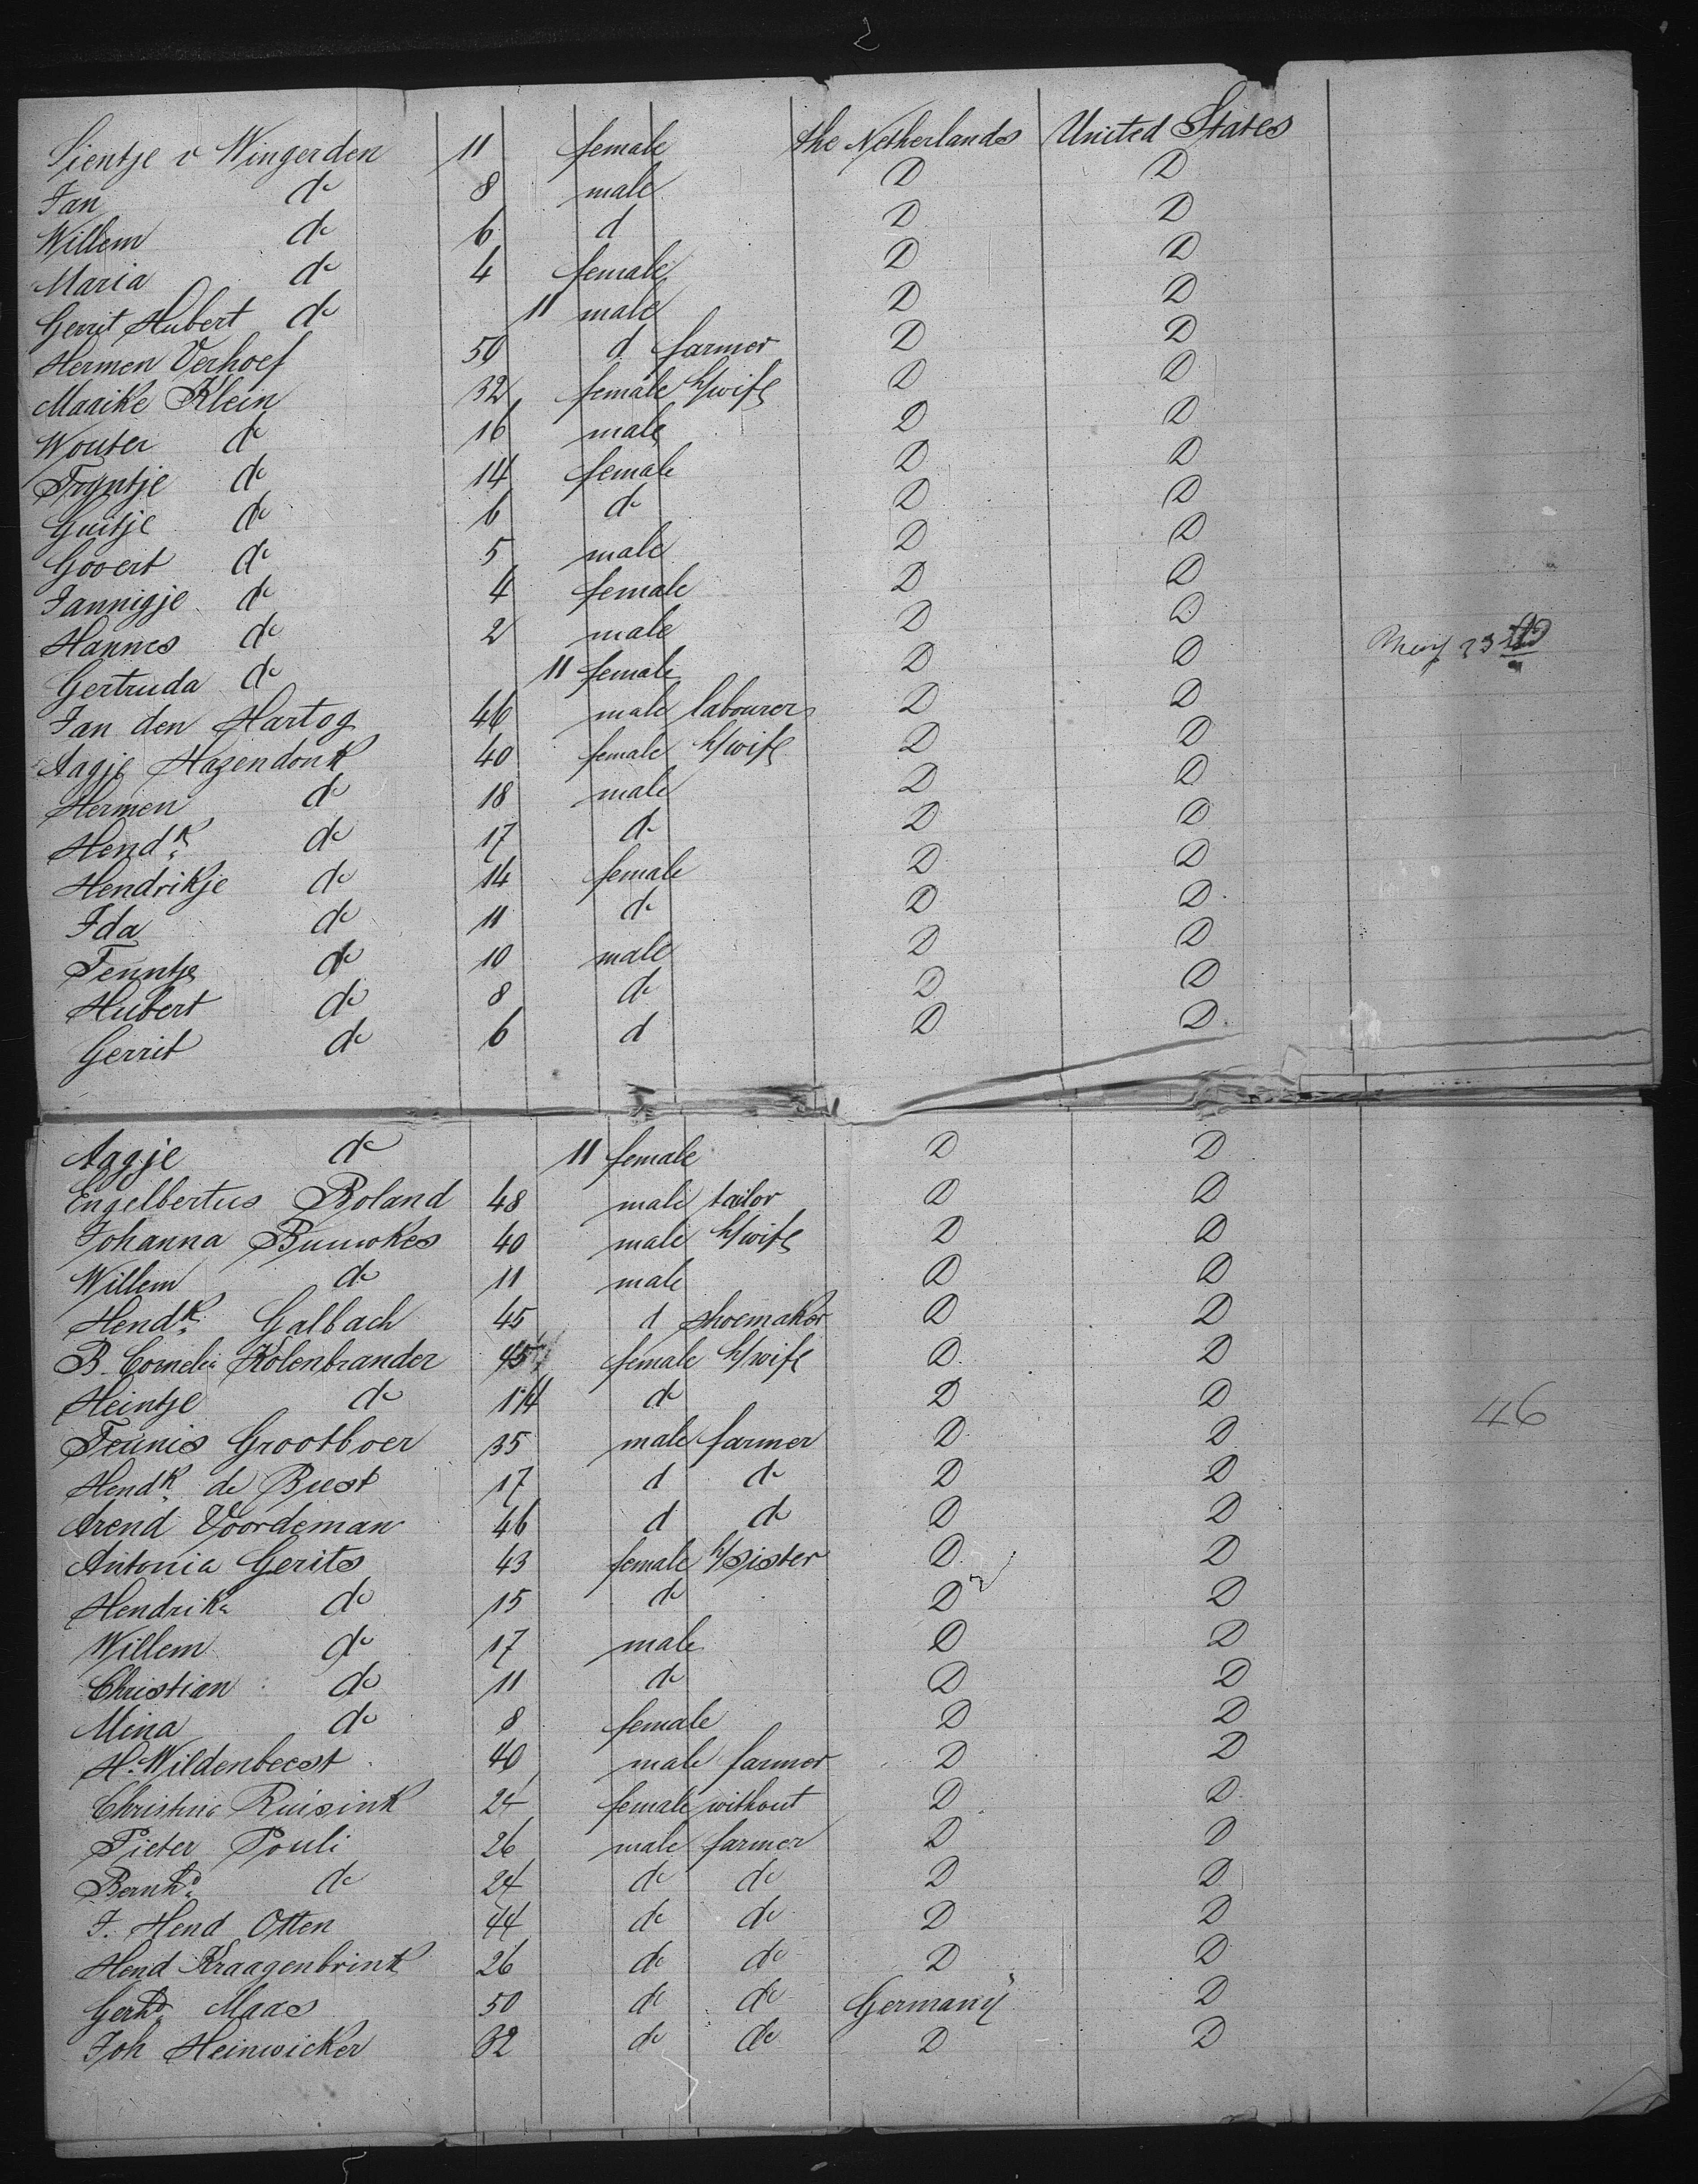 2
Sientje v Wingerden 11 female the Netherlands United States
Jan do 8 male D D
Willem do 6 d D D
Maria do 4 female D D
Gerrit Hubert do 11 male D D
Hermen Verhoef 50 d farmer D D
Maaike Klein 32 female h/wife D D
Wouter do 16 male D D
Tryntje do 14 female D D
Guitje do 6 do D D
Govert do 5 male D D
Jannigje do 4 female D D
Hannes do 2 male D D
Gertruda do 11 female D D
Jan den Hartog 46 male labourer D D
Aagje Hazendonk 40 female h/wife D D
Hermen do 18 male D D
Hendk do 17 do D D
Hendrikje do 14 female D D
Ida do 11 do D D
Tenntje do 10 male D D
Hubert do 8 do D D
Gerrit do 6 d D D
Aagje do 11 female D D
Engelbertus Roland 48 male tailor D D
Johanna 40 male h/wife D D
Willem do 11 male D D
Hendk Galbach 45 d shoemaker D D
B. Cornelia Kolenbrander 45 female h/wife D D
Heintje do 14 do D D
Teunis Grootboer 35 male farmer D D
Hendk de Bust 17 d do D D
Arend Voordeman 46 d do D D
Antonia Gerits 43 female h/sister D D
Hendrika do 15 do D D
Willem do 17 male D D
Christian do 11 do D D
Mina do 8 female D D
H. Wildenbeest 40 male farmer D D
Christina Ruisink 24 female without D D
Pieter Pouli 26 male farmer D D
Bernhd do 24 do do D D
J. Hend Otten 44 do do D D
Hend Kraagenbrink 26 do do D D
Gerhd Maas 50 do do Germany D
Joh Heinwicker 32 do do D D
46